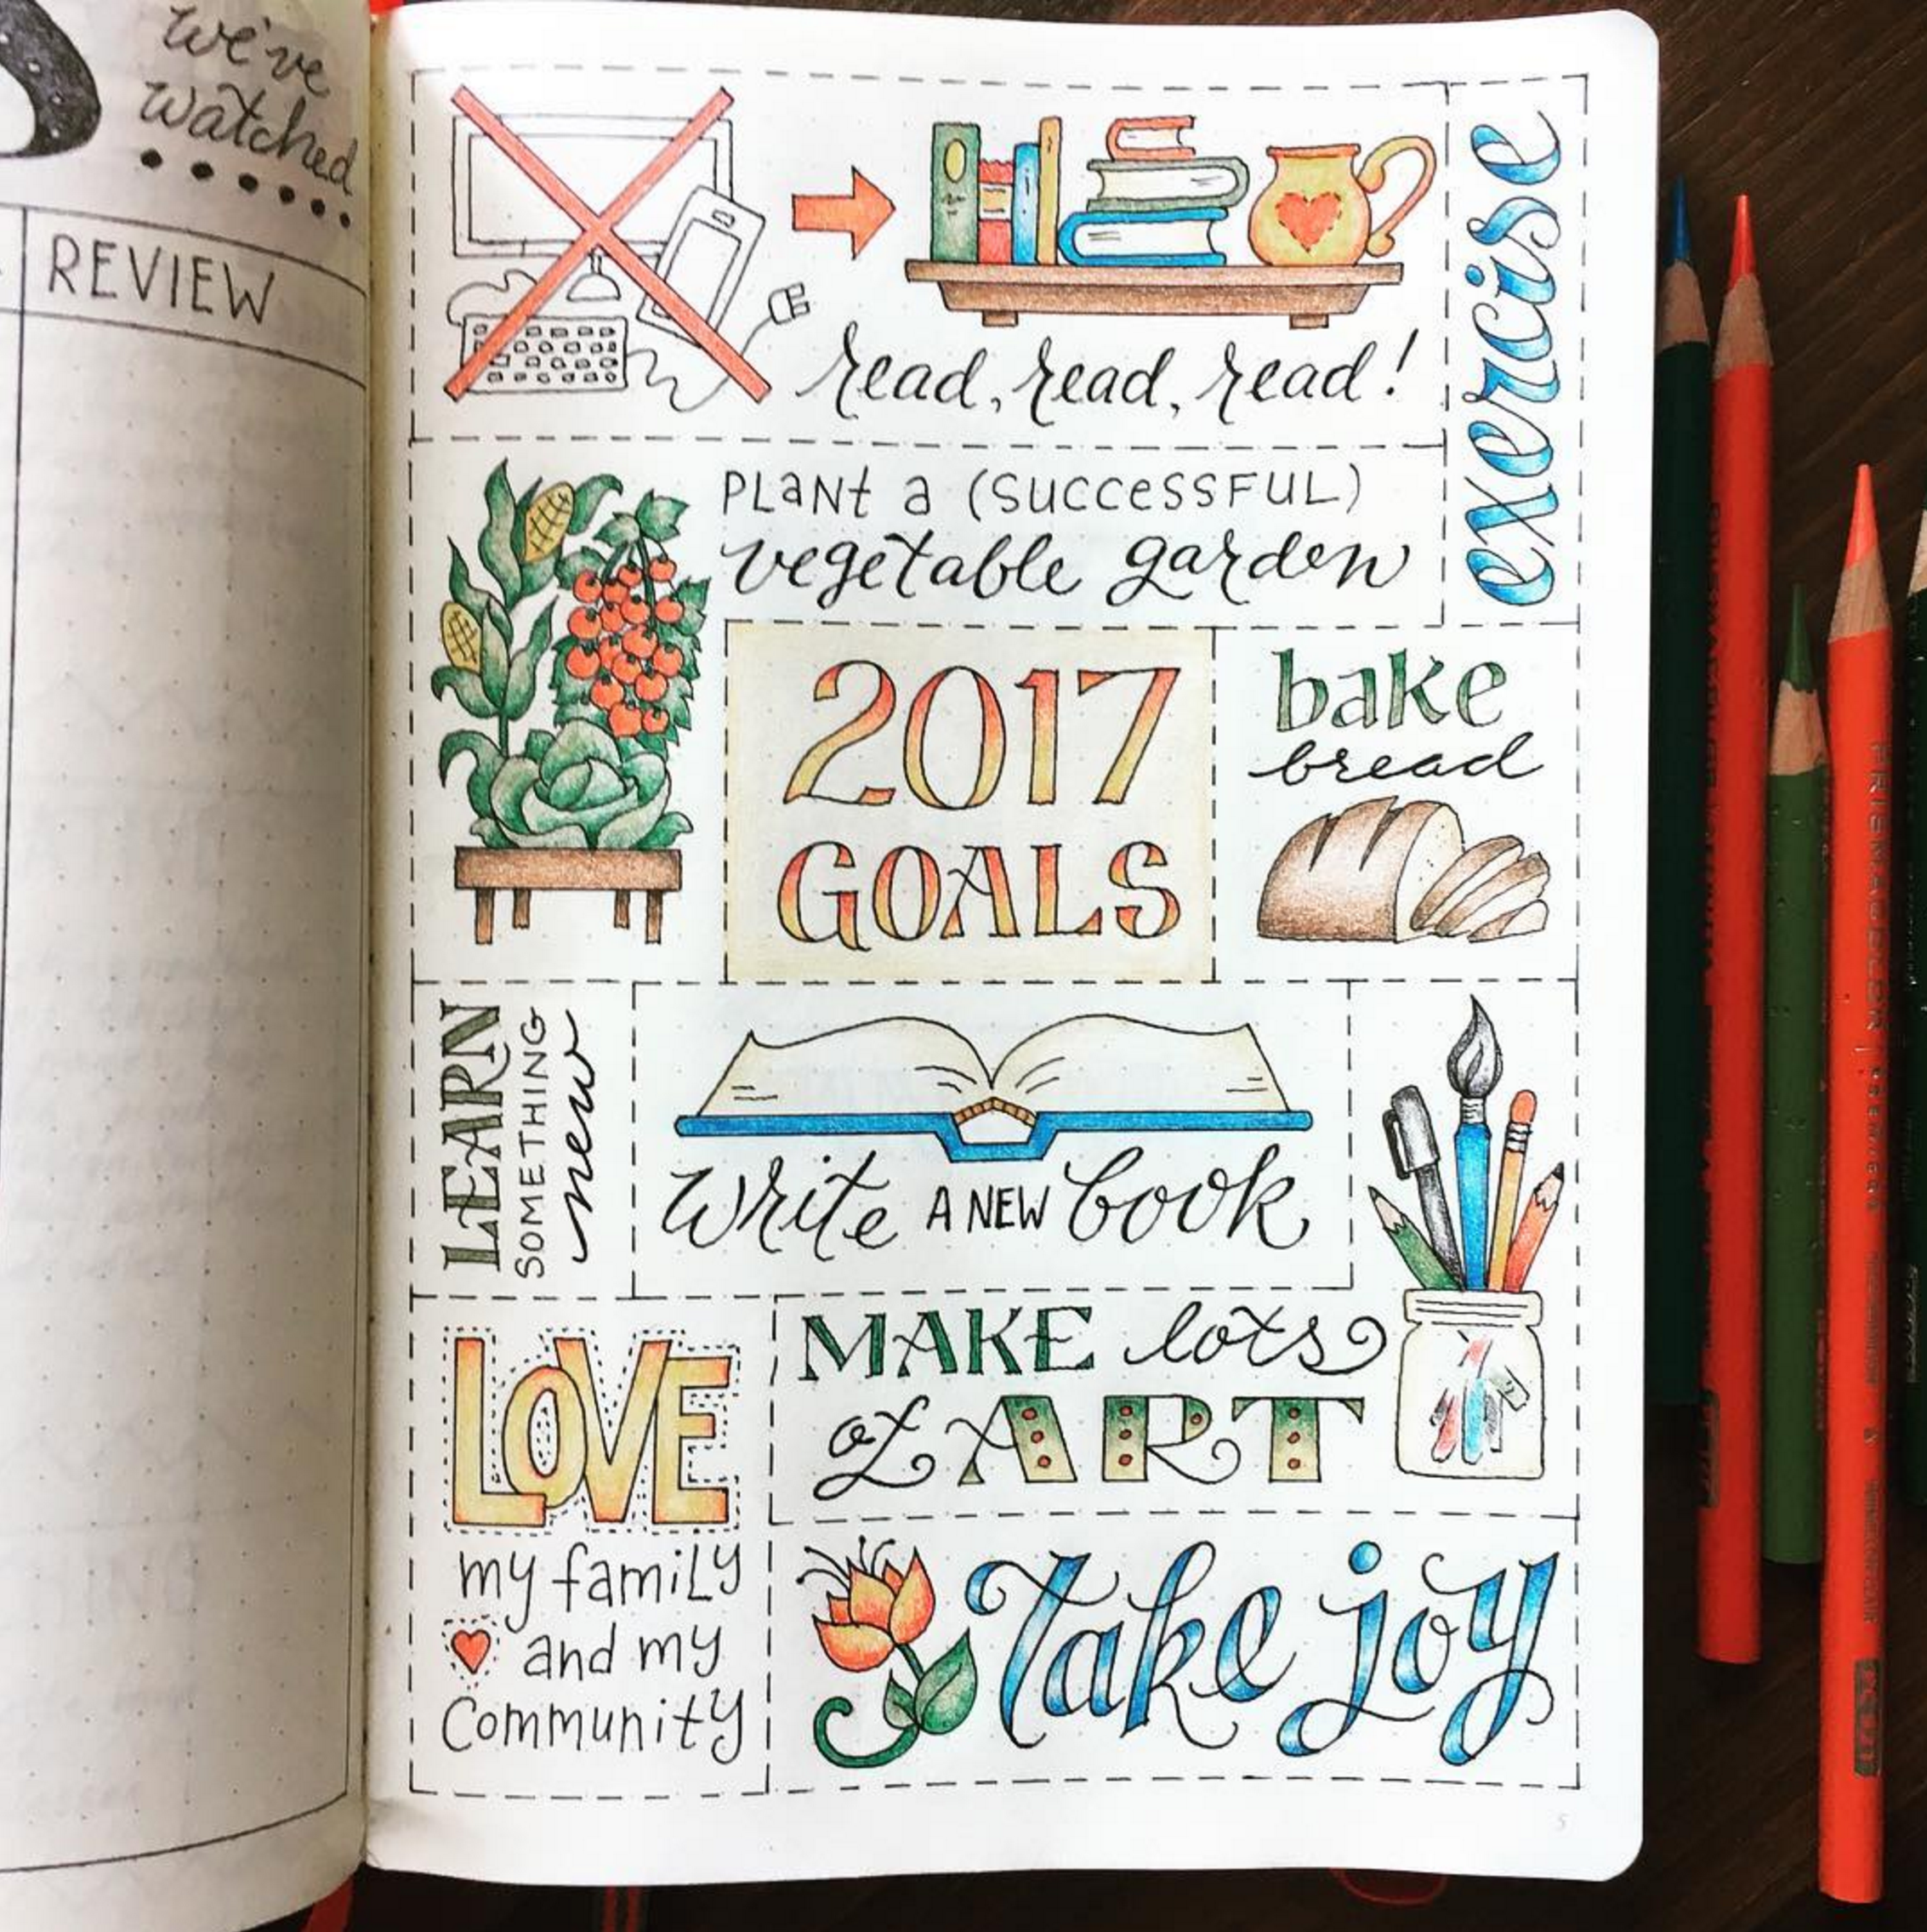 we've
watched
REVIEW
read, read, read!
exercise
PLaNt a (SUCCeSSFUL)
vegetable garden
2017
GOALS
bake
bread
LEARN
SOMETHING
new
write A NEW book
LOVE
my famiLy
and my
Community
MAKE lots
of ART
Take joy
5
PRISMACOLOR